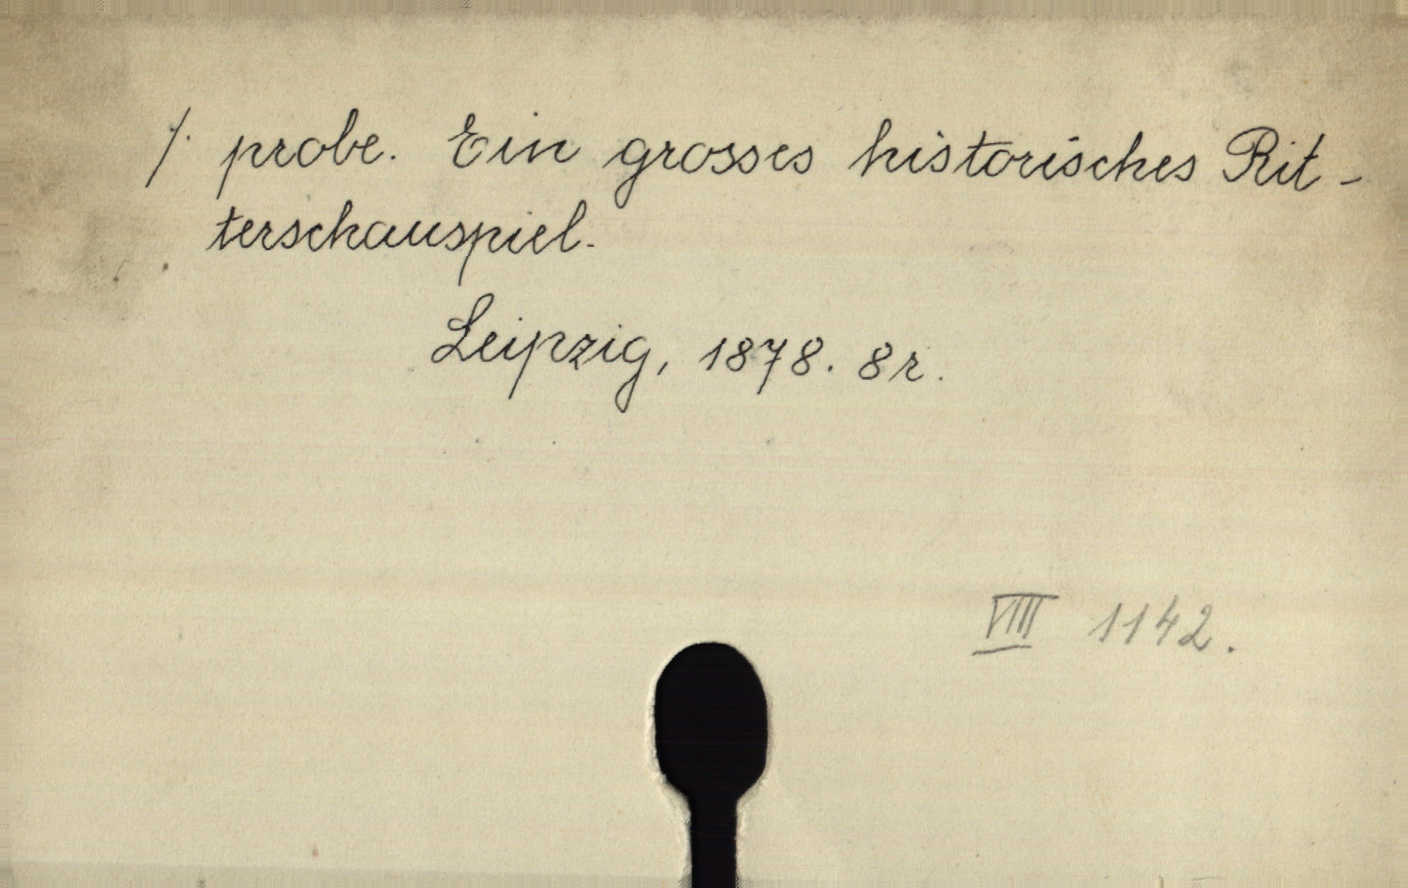 /. probe. Ein grosses historisches Rit-
terschauspiel.
Leipzig, 1878. 8r.
VIII 1142.